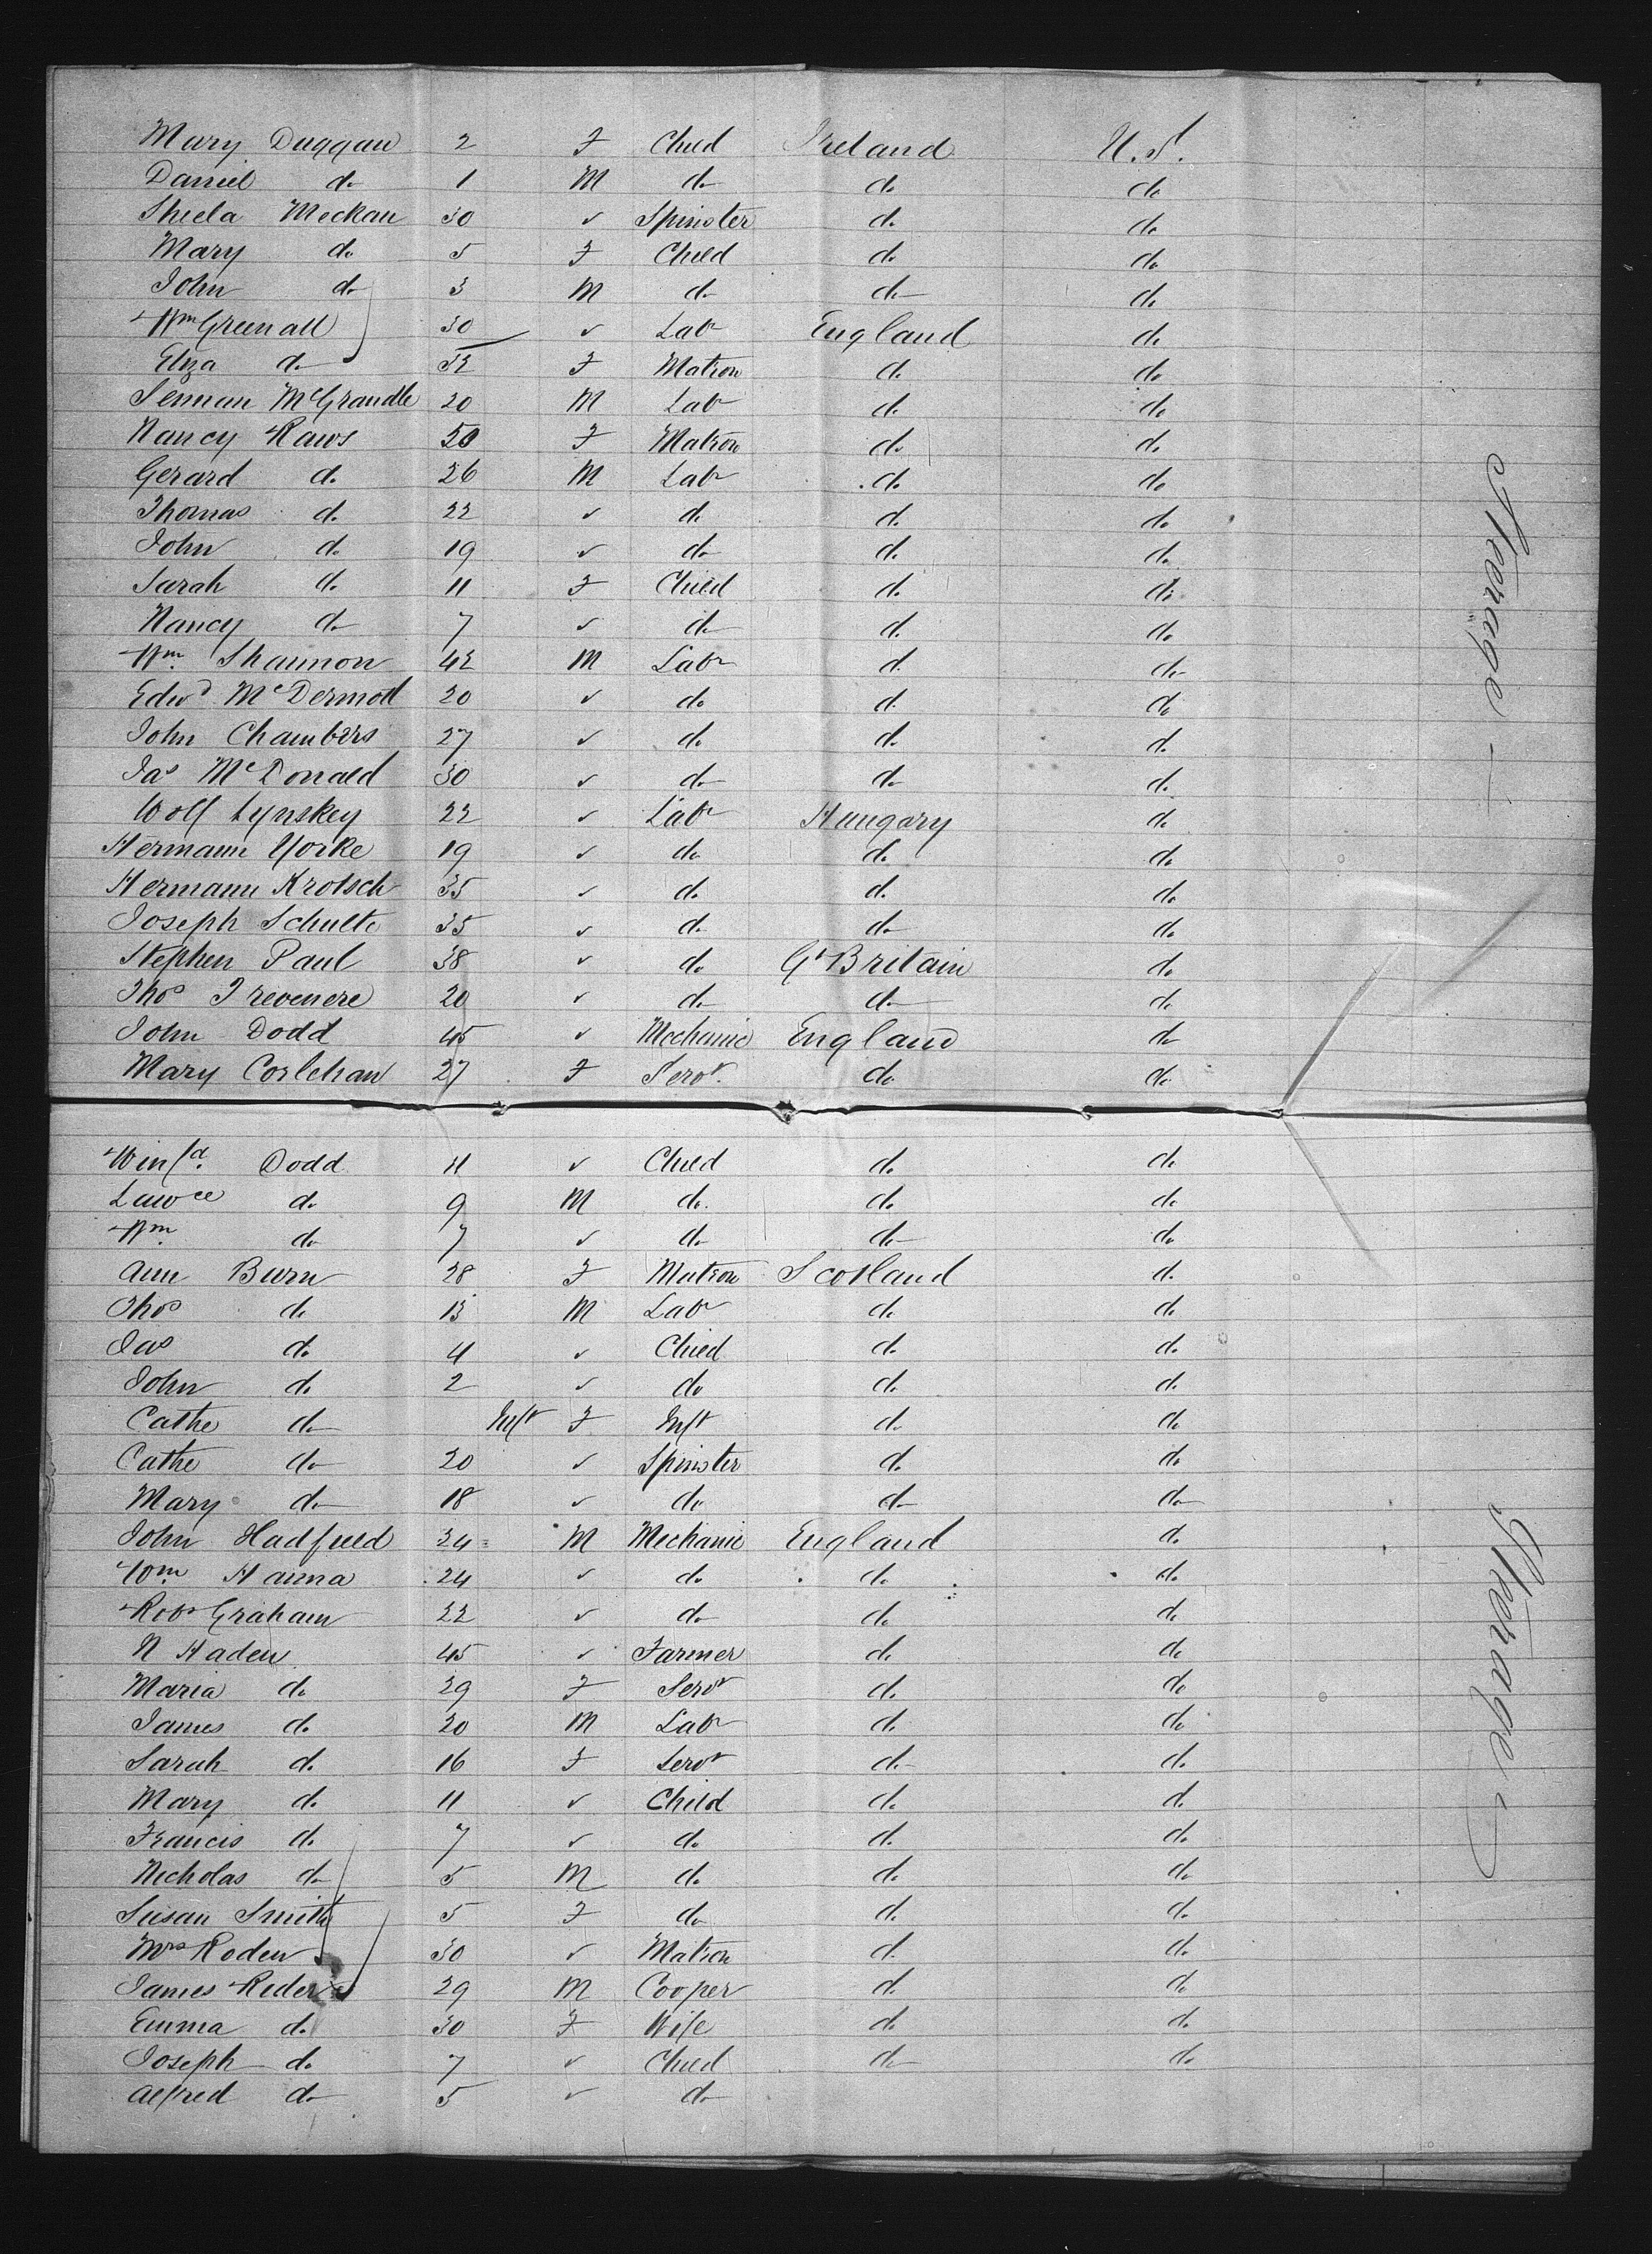 Mary Duggan 2 F Child Ireland U.S.
Daniel do 1 M do do do
Sheela Meckan 30 ✓ Spinster do do
Mary do 5 F Child do do
John do 3 M do do do
Wm Greenall 30 ✓ Labr England do
Eliza do 32 F Matron do do
McGrandle 20 M Labr do do
Nancy Raws 50 F Matron do do
Gerard do 26 M Labr do do
Thomas do 22 ✓ do do do
John do 19 ✓ do do do
Sarah do 11 F Child do do
Nancy do 7 ✓ do do do
Wm Shannon 42 M Labr do do
Edwd McDermott 20 ✓ do do do
John Chambers 27 ✓ do do do
Jas McDonald 30 ✓ do do do
Wolf Lynskey 22 ✓ Labr Hungary do
Hermann Yorke 19 ✓ do do do
Hermann Krotsch 35 ✓ do do do
Joseph Schulte 35 ✓ do do do
Stephen Paul 38 ✓ do Gt Britain do
Thos Trevenere 20 ✓ do do do
John Dodd 45 ✓ Mechanic England do
Mary Corlehan 27 F Servt. do do
Winfd. Dodd 11 ✓ Child do do
Lawce do 9 M do do do
Wm do 7 ✓ do do do
Ann Burn 28 F Matron Scotland do
Thos do 13 M Labr do do
Jas do 4 ✓ Child do do
John do 2 ✓ do do do
Cathe do Inft F Inft do do
Cathe do 20 ✓ Spinster do do
Mary do 18 ✓ do do do
John Hadfield 24 M Mechanic England do
Wm Hanna 24 ✓ do do do
Robt Graham 22 ✓ do do do
N Haden 45 ✓ Farmer do do
Maria do 29 F Servt do do
James do 20 M Labr do do
Sarah do 16 F Servt do do
Mary do 11 ✓ Child do do
Francis do 7 ✓ do do do
Nicholas do 5 M do do do
Susan Smith 5 F do do do
Mrs Roden 30 ✓ Matron do do
James Reder 29 M Cooper do do
Emma do 30 F Wife do do
Joseph do 7 ✓ Child do do
Alfred do 5 ✓ do
Steerage —
Steerage